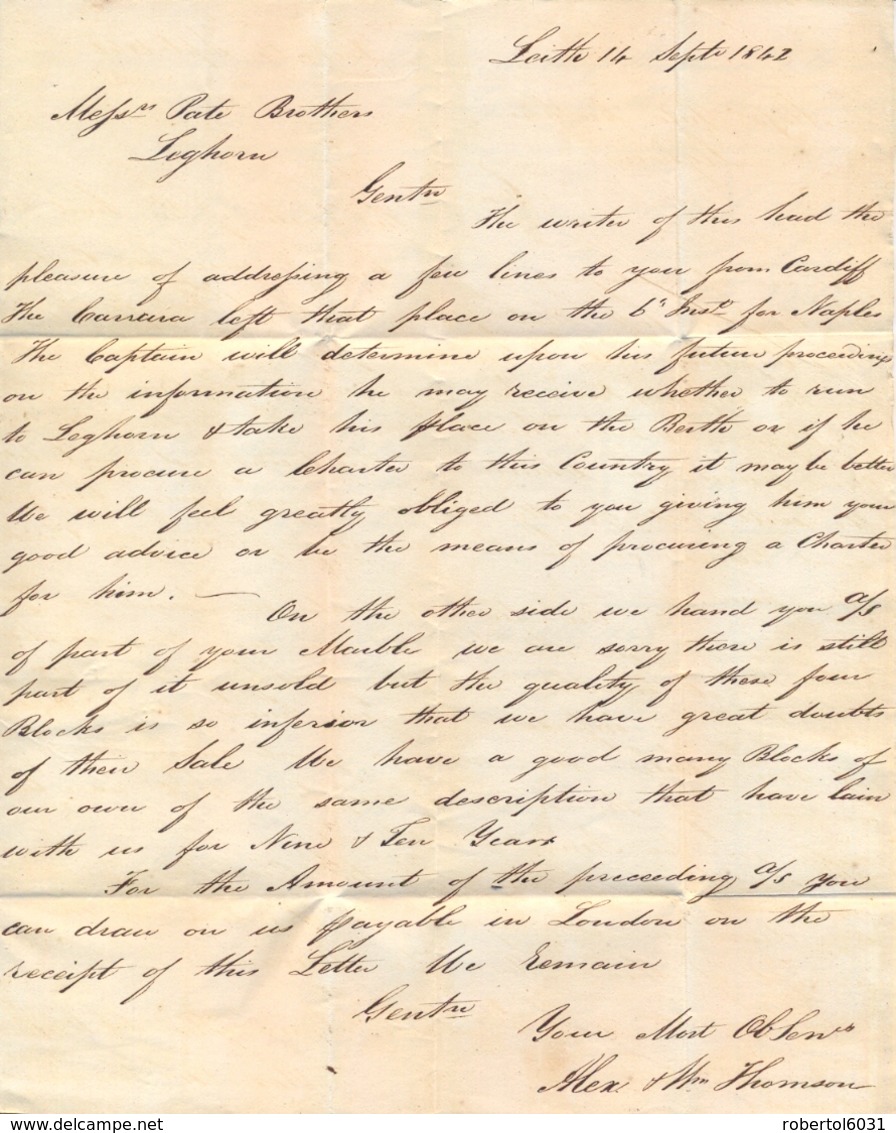 Leith 14 Septr 1842
Messrs Pate Brothers
Leghorn
Gentn
The writer of this had the
pleasure of addressing a few lines to you from Cardiff
The Carrara left that place on the 6th Inst for Naples
The Captain will determine upon his future proceedings
on the information he may receive whether to run
to Leghorn & take his place on the Berth or if he
can procure a Charter to this Country it may be better
We will feel greatly obliged to you giving him your
good advice or be the means of procuring a Charter
for him. —
On the other side we hand you a/s
of part of your Marble we are sorry there is still
part of it unsold but the quality of these four
Blocks is so inferior that we have great doubts
of their Sale We have a good many Blocks of
our own of the same description that have lain
with us for Nine & Ten Years
For the Amount of the preceeding a/s you
can draw on us payable in London on the
receipt of this Letter We Remain
Gentn
Your Most Ob Servts
Alex & Wm Thomson
www.delcampe.net
robertol6031